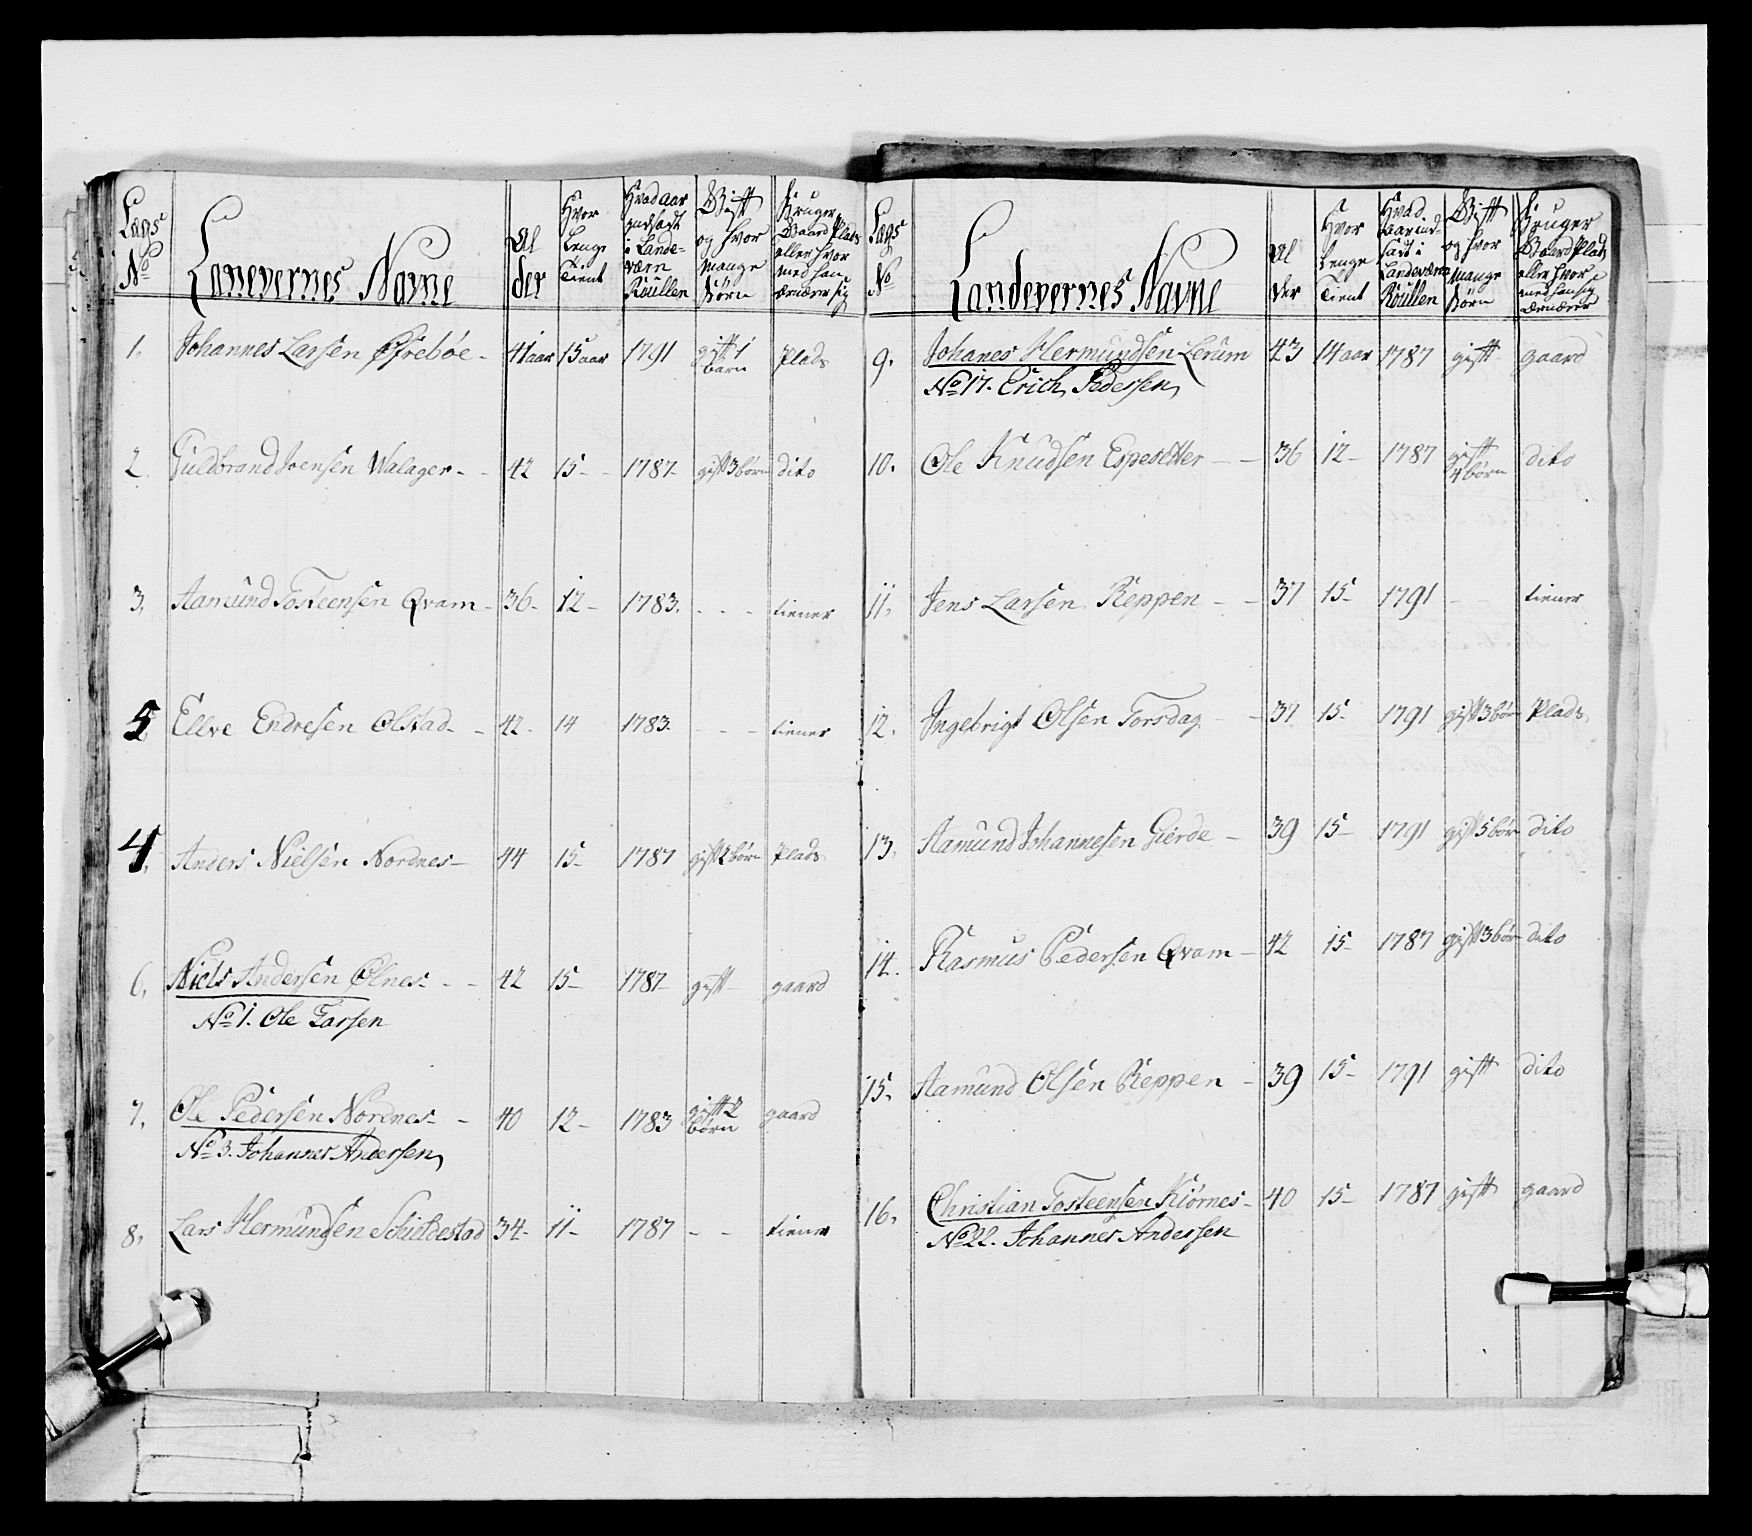 Lægs No
Lanevernes Navne
Al der
Hvor Lenge Tient
Hvad aar indsadt i Lande-værn Roullen
Gift og hvor mange Børn
Bruger Gaard Plads eller hvor med han Ernærer sig
1. Johannes Larsen Øfrebøe - 41 aar 15 aar 1791 gift 1 barn Plads
2. Guldbrand Joensen Walager - - 42 15 - 1787 - gift 3 børn dito
3. Aamund Tosteensen Qvam - 36 - 12 - 1783. - - - tiener
5 Ellve Endresen Olstad - - 42 - 14 1783. - - - tiener
4. Anders Nielsen Nordnes - 44 15 - 1787 gift 2 børn Plads
6. Niels Andersen Ølnes - - 42 15 - 1787 - gift - gaard
No 1. Ole Larsen
7. Ole Pedersen Nordnes - - 40 12 - 1783 gift 2 børn gaard
No 3. Johannes Andersen
8. Lars Hermundsen Schioldestad 34 - 11 - 1787 - - tiener
Lægs No
Landevernes Navne
Al der
Hvor Lenge Tient
Hvad aar ind sadt i Landeværn Roullen
Gift og hvor mange Børn
Bruger Gaard Plads eller hvor med han sig Ernærer
9. Johanes Hermundsen Lerum 43 14 aar 1787 gift gaard
No 17. Erich Pedersen
10. Ole Knudsen Espesetter - - 36 12 - 1787 gift 4 børn dito
11. Jens Larsen Reppen - - 37 15 - 1791 - tiener
12. Ingebrigt Olsen Torsdag - - 37 15 - 1791 gift 3 børn Plads
13. Aamund Johannesen Gierde - 39 15 - 1791 gift 5 børn dito
14. Rasmus Pedersen Qvam - 42 15 - 1787 gift 3 børn dito
15. Aamund Olsen Reppen - 39 15 - 1791 gift dito
16. Christian Tosteensen Kiørnes - 40 15 - 1787 gift gaard
No 22. Johannes Andersen